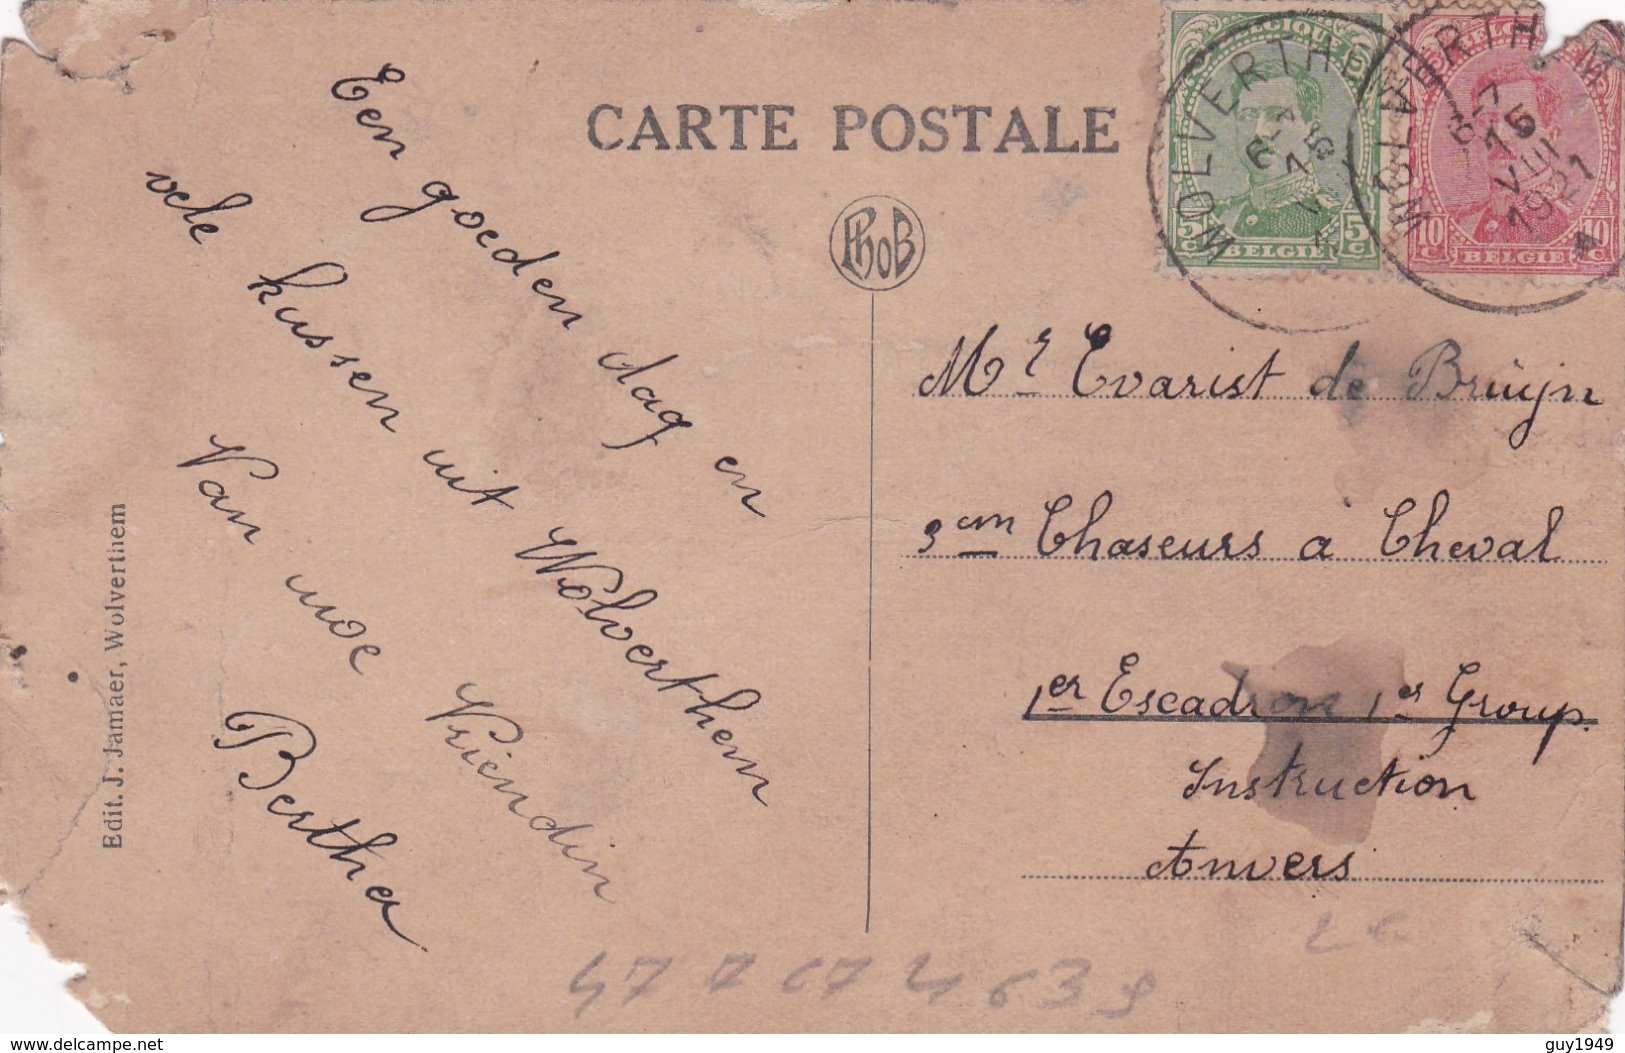 CARTE POSTALE
PhoB
Een goeden dag en
vele kussen uit Wolverthem
Van uwe Vriendin
Bertha
Edit. J. Jamaer, Wolverthem
BELGIQUE
5c 5c
BELGIE
BELGIQUE
10c 10c
BELGIE
WOLVERTHEM
WOLVERTHEM
6-7
15
VIII
1921
Mr Evarist de Bruijn
3em Chaseurs à Cheval
1er Escadron 1er Group.
Instruction
Anvers
delcampe.net
guy1949